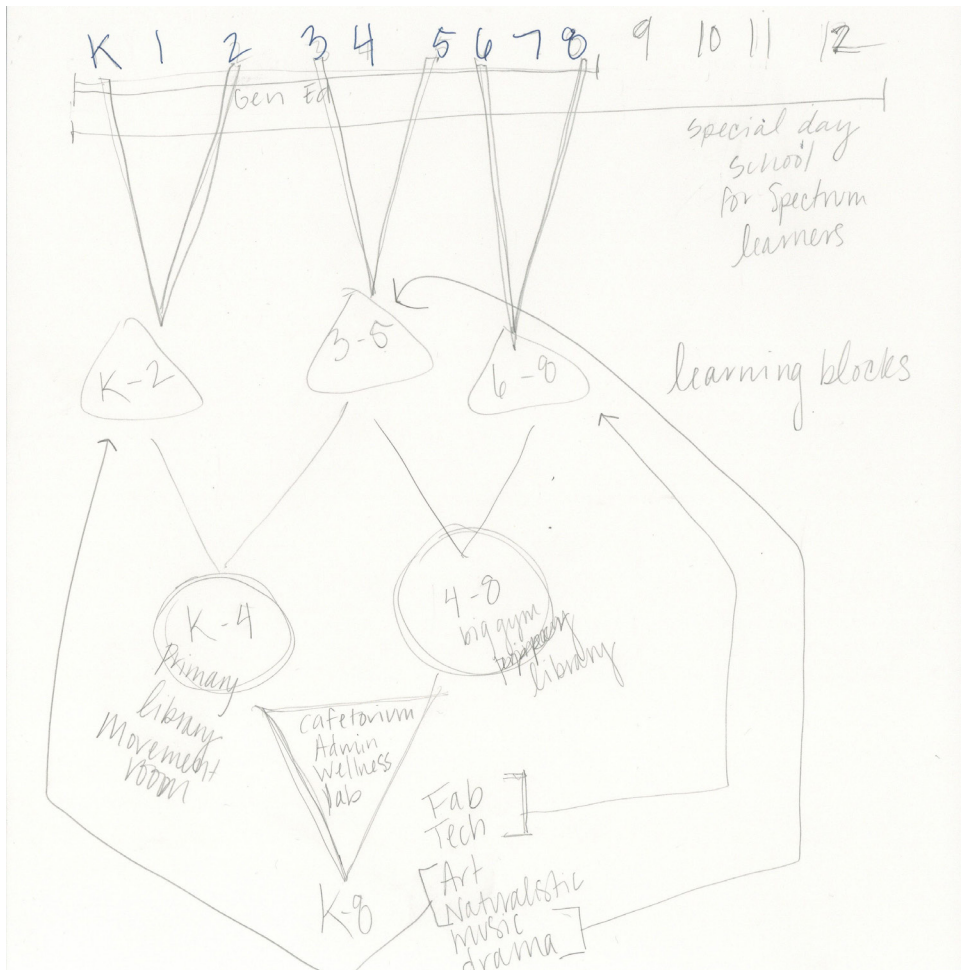 K 1 2 3 4 5 6 7 8 9 10 11 12
Gen Ed
Special day
School
For Spectrum
learners
K-2
3-5
6-8
learning blocks
K-4
Primary
library
Movement
room
4-8
big gym
library
Cafetorium
Admin
Wellness
lab
K-8
Fab
Tech
Art
Naturalistic
music
drama